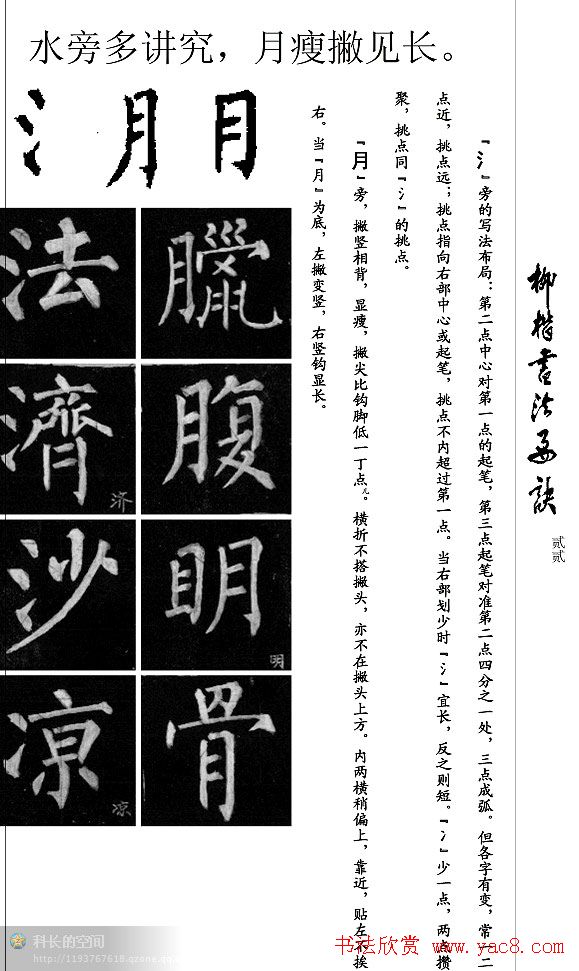 水旁多讲究，月瘦撇见长。
氵 月 月
法 臘
濟 腹
济
沙 眀
明
凉 骨
凉
『氵』旁的写法布局：第二点中心对第一点的起笔，第三点起笔对准第二点四分之一处，三点成弧。但各字有变，常一二
点近，挑点远；挑点指向右部中心或起笔，挑点不内超过第一点。当右部划少时『氵』宜长，反之则短。『冫』少一点，两点攒
聚，挑点同『氵』的挑点。
『月』旁，撇竖相背，显瘦，撇尖比钩脚低一丁点儿。横折不搭撇头，亦不在撇头上方。内两横稍偏上，靠近，贴左不挨
右。当『月』为底，左撇变竖，右竖钩显长。
柳楷书法要诀
贰贰
科长的空间
http://1193767618.qzone.qq.
书法欣赏 www.yac8.com